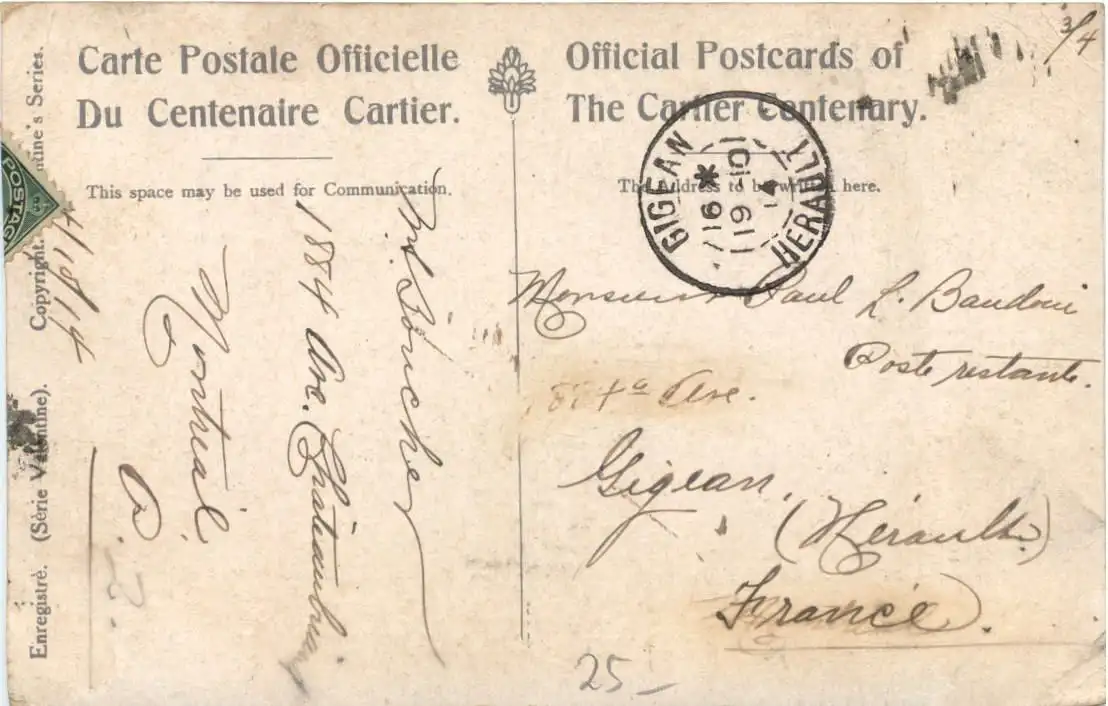 Carte Postale Officielle
Du Centenaire Cartier.
This space may be used for Communication.
Official Postcards of
The Cartier Centenary.
The Address to be written here.
3/4
GIGEAN
16 *
19-10
14
HERAULT
Monsieur Paul L. Baudoui
Poste restante.
Ave.
Gigean,
(Hérault)
France.
25-
Boucher
1884 Ave. Chateaubriand
Montreal
4/10/14
POSTAGE
Enregistré. (Série Valentine). Copyright. Series.